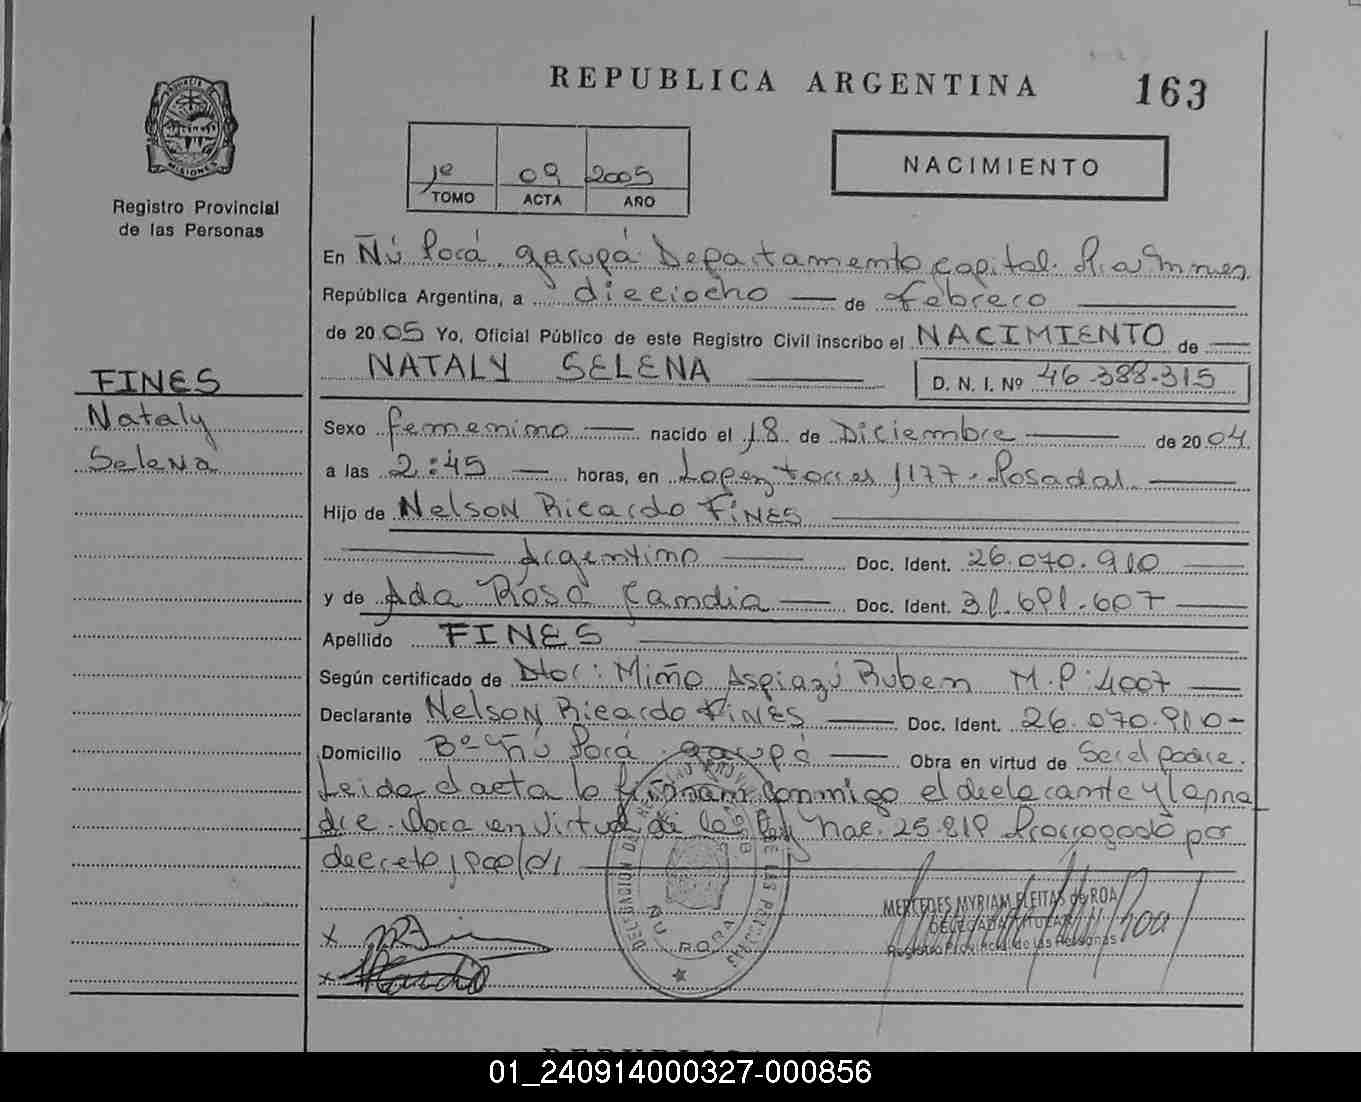 REPUBLICA ARGENTINA
163
PROVINCIA DE MISIONES
Registro Provincial
de las Personas
1º 09 2005
TOMO ACTA AÑO
NACIMIENTO
En Ñú Porá, Garupá Departamento Capital. Pcia Mnes.
República Argentina, a dieciocho de febrero
de 2005 Yo, Oficial Público de este Registro Civil inscribo el NACIMIENTO de
NATALY SELENA
D. N. I. Nº 46.388.315
FINES
Nataly
Selena
Sexo femenino nacido el 18 de Diciembre de 2004
a las 2:45 horas, en Lopez torres 1177. Posadas.
Hijo de Nelson Ricardo FiNES
Argentino Doc. Ident. 26.070.910
y de Ada Rosa Candia Doc. Ident. 31.691.607
Apellido FINES
Según certificado de Dtor: Miño Aspiazú Ruben M.P: 4007
Declarante Nelson Ricardo FiNES Doc. Ident. 26.070.910-
Domicilio Bº Ñú Porá. Garupá Obra en virtud de Ser el padre.
Leida el acta la firman conmigo el declarante y la ma
dre. Doca en virtud de la Ley nac. 25.819 Prorrogado por
decreto
MERCEDES MYRIAM FLEITAS de ROA
DELEGADA TITULAR
Registro Provincial de las Personas
DELEGACION DEL REGISTRO PROVINCIAL DE LAS PERSONAS
ÑU PORA
REPUBLICA
01_240914000327-000856